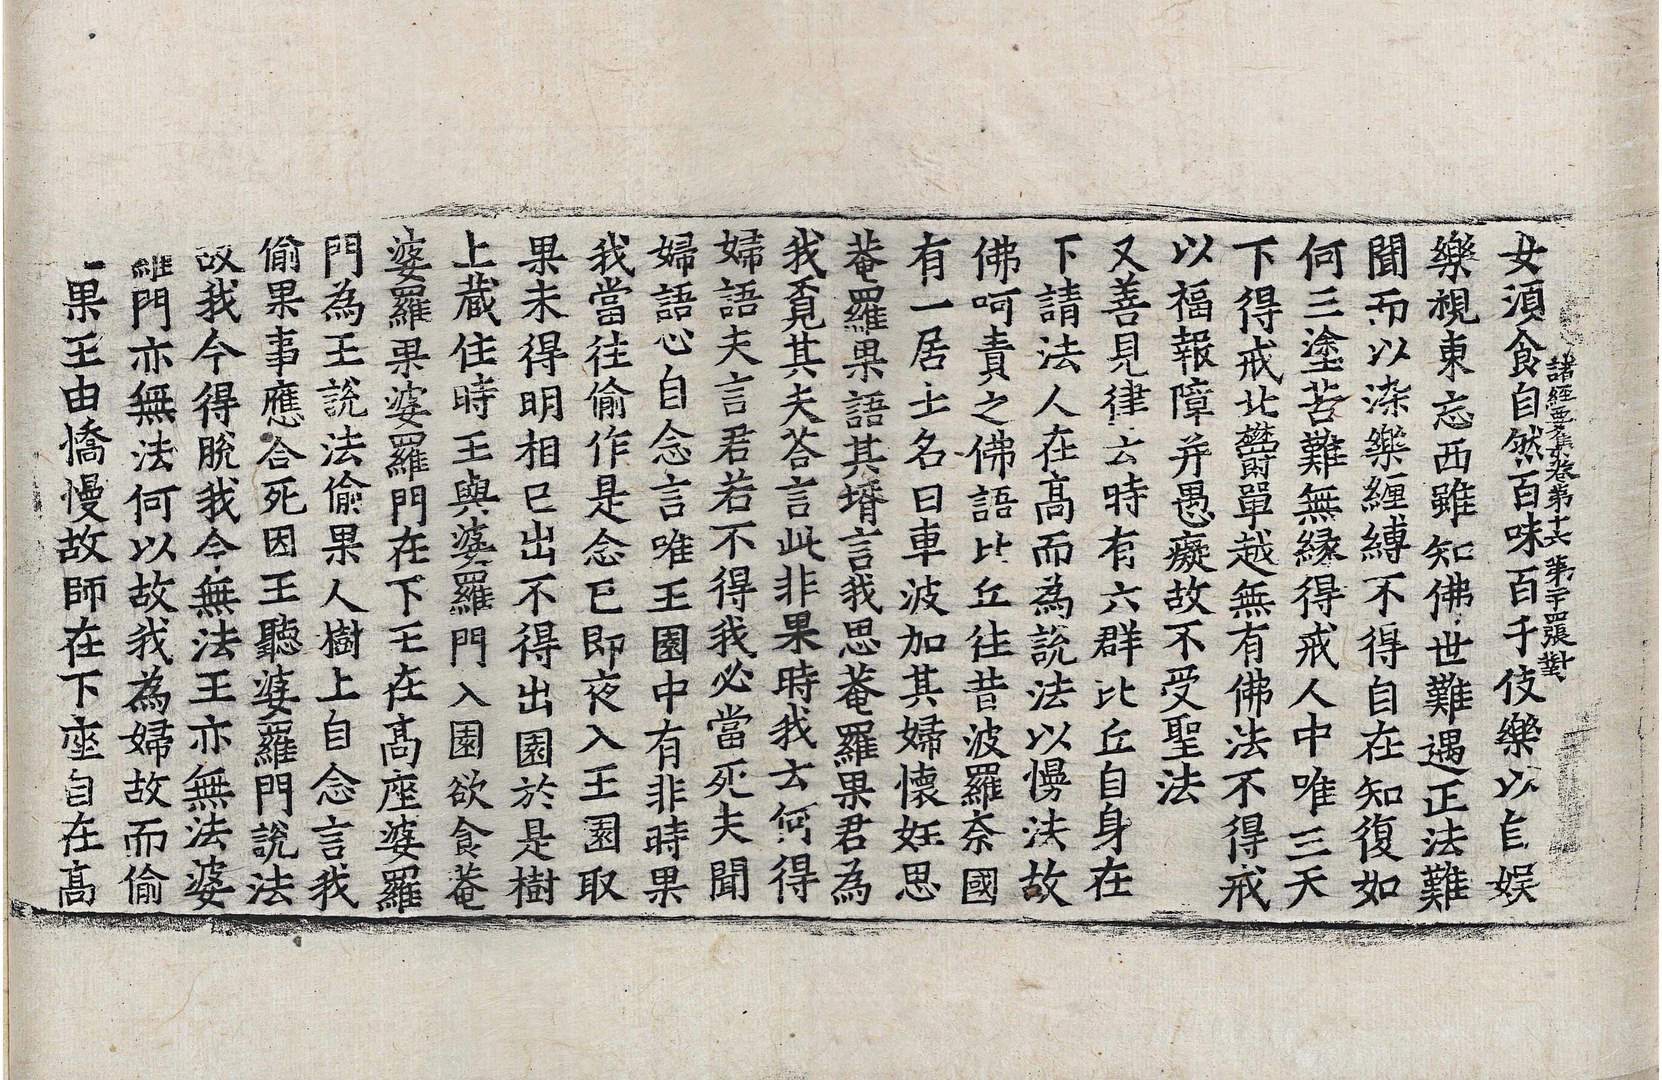 諸經要集卷第十六 第二十四張 對
女須食自然百味百千伎樂以自娛
樂視東忘西雖知佛世難遇正法難
聞而以染樂纏縛不得自在知復如
何三塗苦難無緣得戒人中唯三天
下得戒北欝單越無有佛法不得戒
以福報障并愚癡故不受聖法
又善見律云時有六群比丘自身在
下請法人在高而為說法以慢法故
佛呵責之佛語比丘往昔波羅柰國
有一居士名曰車波加其婦懷妊思
菴羅果語其壻言我思菴羅果君為
我覓其夫荅言此非果時我云何得
婦語夫言君若不得我必當死夫聞
婦語心自念言唯王園中有非時果
我當往偷作是念已即夜入王園取
果未得明相已出不得出園於是樹
上藏住時王與婆羅門入園欲食菴
婆羅果婆羅門在下王在高座婆羅
門為王說法偷果人樹上自念言我
偷果事應合死因王聽婆羅門說法
故我今得脫我今無法王亦無法婆
羅門亦無法何以故我為婦故而偷
果王由憍慢故師在下座自在高